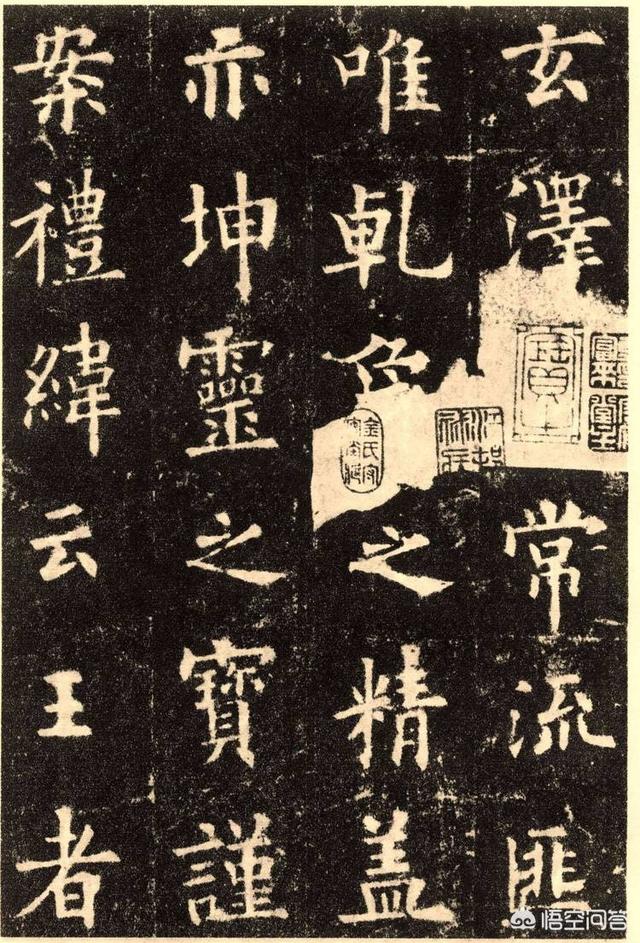 玄澤常流匪
唯乹之精盖
亦坤靈之寶謹
案禮緯云王者
悟空问答